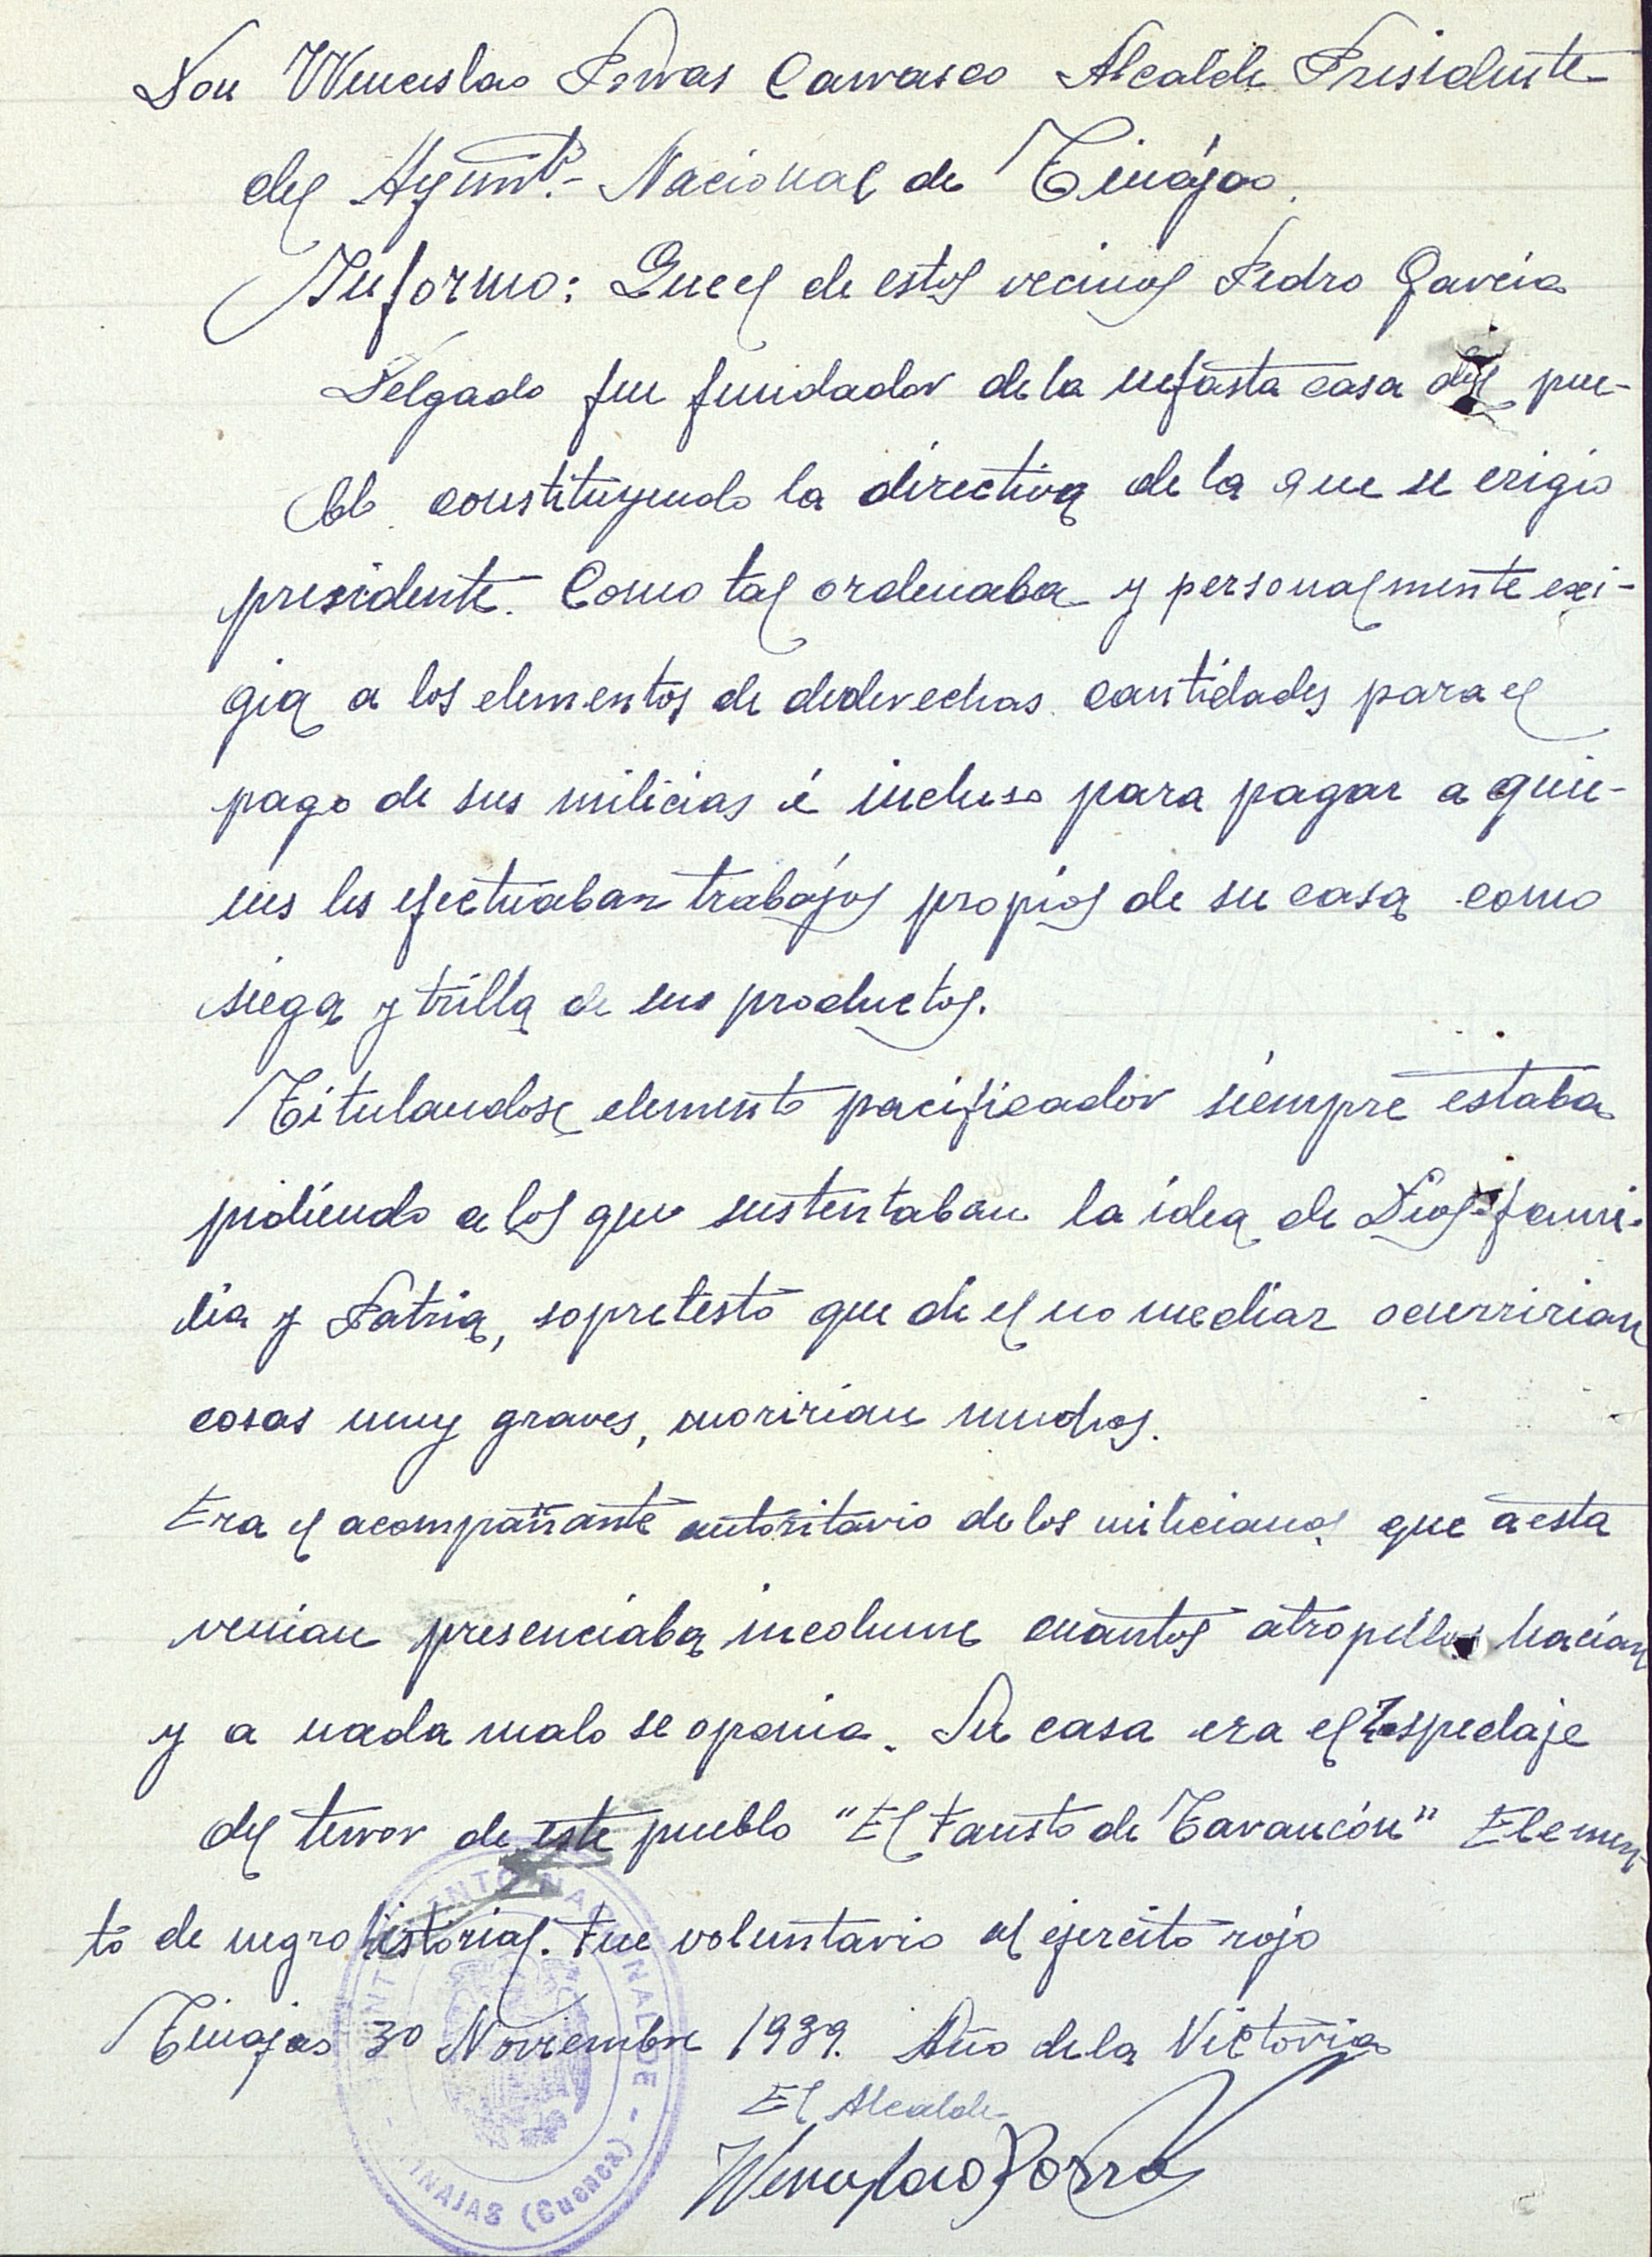 Don Wenceslao Porras Carrasco Alcalde Presidente
del Ayunt.º- Nacional de Tinájas.
Informo: Que el de estos vecinos Pedro Garcia
Delgado fue fundador de la nefasta casa del pue-
blo constituyendo la directiva de la que se erigio
presidente. Como tal ordenaba y personalmente exi-
gia a los elementos de dederechas cantidades para el
pago de sus milicias é incluso para pagar a quie-
nes les efectuaban trabajos propios de su casa como
siega y trilla de sus productos.
Titulandose elemento pacificador siempre estaba
pidiendo a los que sustentaban la idea de Dios-fami-
lia y Patria, sopretesto que de el no mediar ocurririan
cosas muy graves, moririan muchos.
Era el acompañante autoritario de los milicianos que a esta
venian presenciaba incolume cuantos atropellos hacian
y a nada malo se oponia. Su casa era el hospedaje
del terror de este pueblo "El Fausto de Tarancón" Elemen-
to de negro historial. Fue voluntario al ejercito rojo
Tinajas 30 Noviembre 1939. Año de la Victoria
El Alcalde
Wenceslao Porras
AYUNTAMIENTO NACIONAL DE
- TINAJAS (Cuenca) -